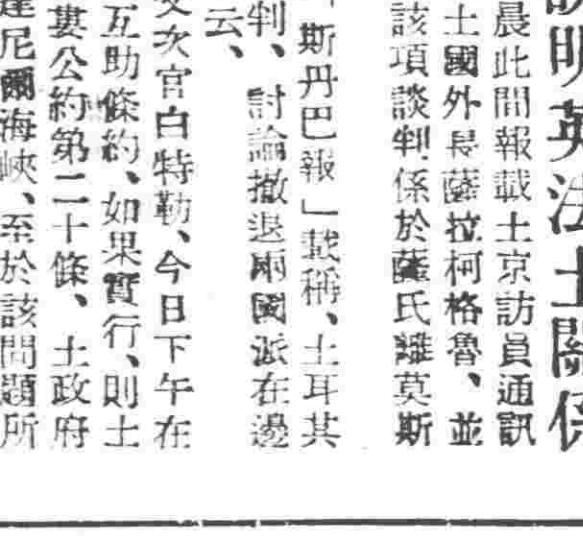 說明英法土關係
晨此間報載土京訪員通訊
土國外長薩拉柯格魯、並
該項談判、係於薩氏離莫斯
斯丹巴報」載稱、土耳其
判、討論撤退兩國派在邊
云、
次官白特勒、今日下午在
互助條約、如果實行、則土
婁公約第二十條、土政府
達尼爾海峽、至於該問題所